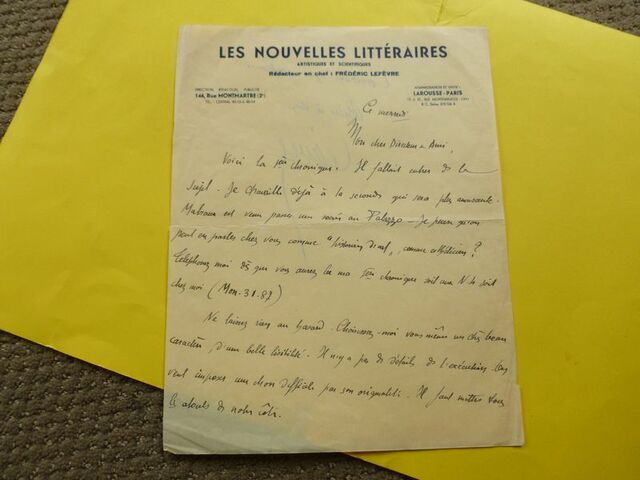 LES NOUVELLES LITTÉRAIRES
ARTISTIQUES ET SCIENTIFIQUES
Rédacteur en chef : FRÉDÉRIC LEFÈVRE
DIRECTION, RÉDACTION, PUBLICITÉ
146, Rue MONTMARTRE (2e)
ADMINISTRATION ET VENTE :
LAROUSSE - PARIS
Ce mercredi
Mon cher Directeur et Ami,
Voici la 1ère chronique. Il fallait entrer de la
sujet. Je travaille déjà à la seconde qui sera plus amusante.
est venu passer une soirée au Palazzo. Je pense qu'on
peut en parler chez vous comme
Téléphonez moi dès que vous aurez lu ma 1ère chronique soit aux N.L. soit
chez moi (Mon. 31.87)
Ne laissez rien au hasard. Choisissez-moi vous même un très beau
caractère, d'une belle lisibilité. Il n'y a pas de détails de l'exécution
veut imposer une chose difficile par son originalité. Il faut mettre tous
les atouts de notre côté.